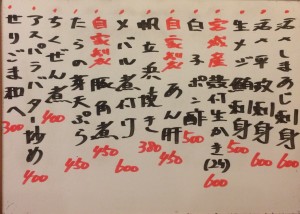 活〆しまあじ刺身 600
活〆平政刺身 600
生鮪刺身 500
宮城産 殻付生かき(2ケ) 600
白子ポン酢 500
自家製 あん肝 450
帆立浜焼き 380
メバル煮付け 600
自家製 豚角煮 450
たらの芽天ぷら 450
ちくぜん煮 400
アスパラバター炒め 400
せりごま和へ 300